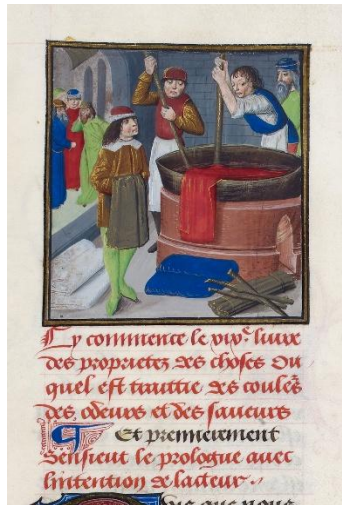 Cy commence le xix.e livre
des proprietez des choses Ou
quel est traittie des coules
des odeurs et des saveurs
Et premierement
Sensieut le prologue avec
lintention de lacteur..
Puis que nous